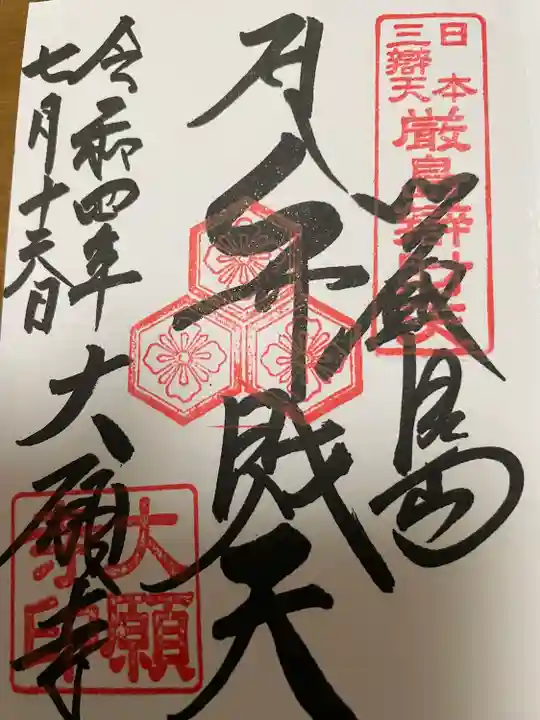 日本
三辯天
厳島辯財天
嚴島
弁財天
令和四年
七月十六日
大願寺
大願
寺印